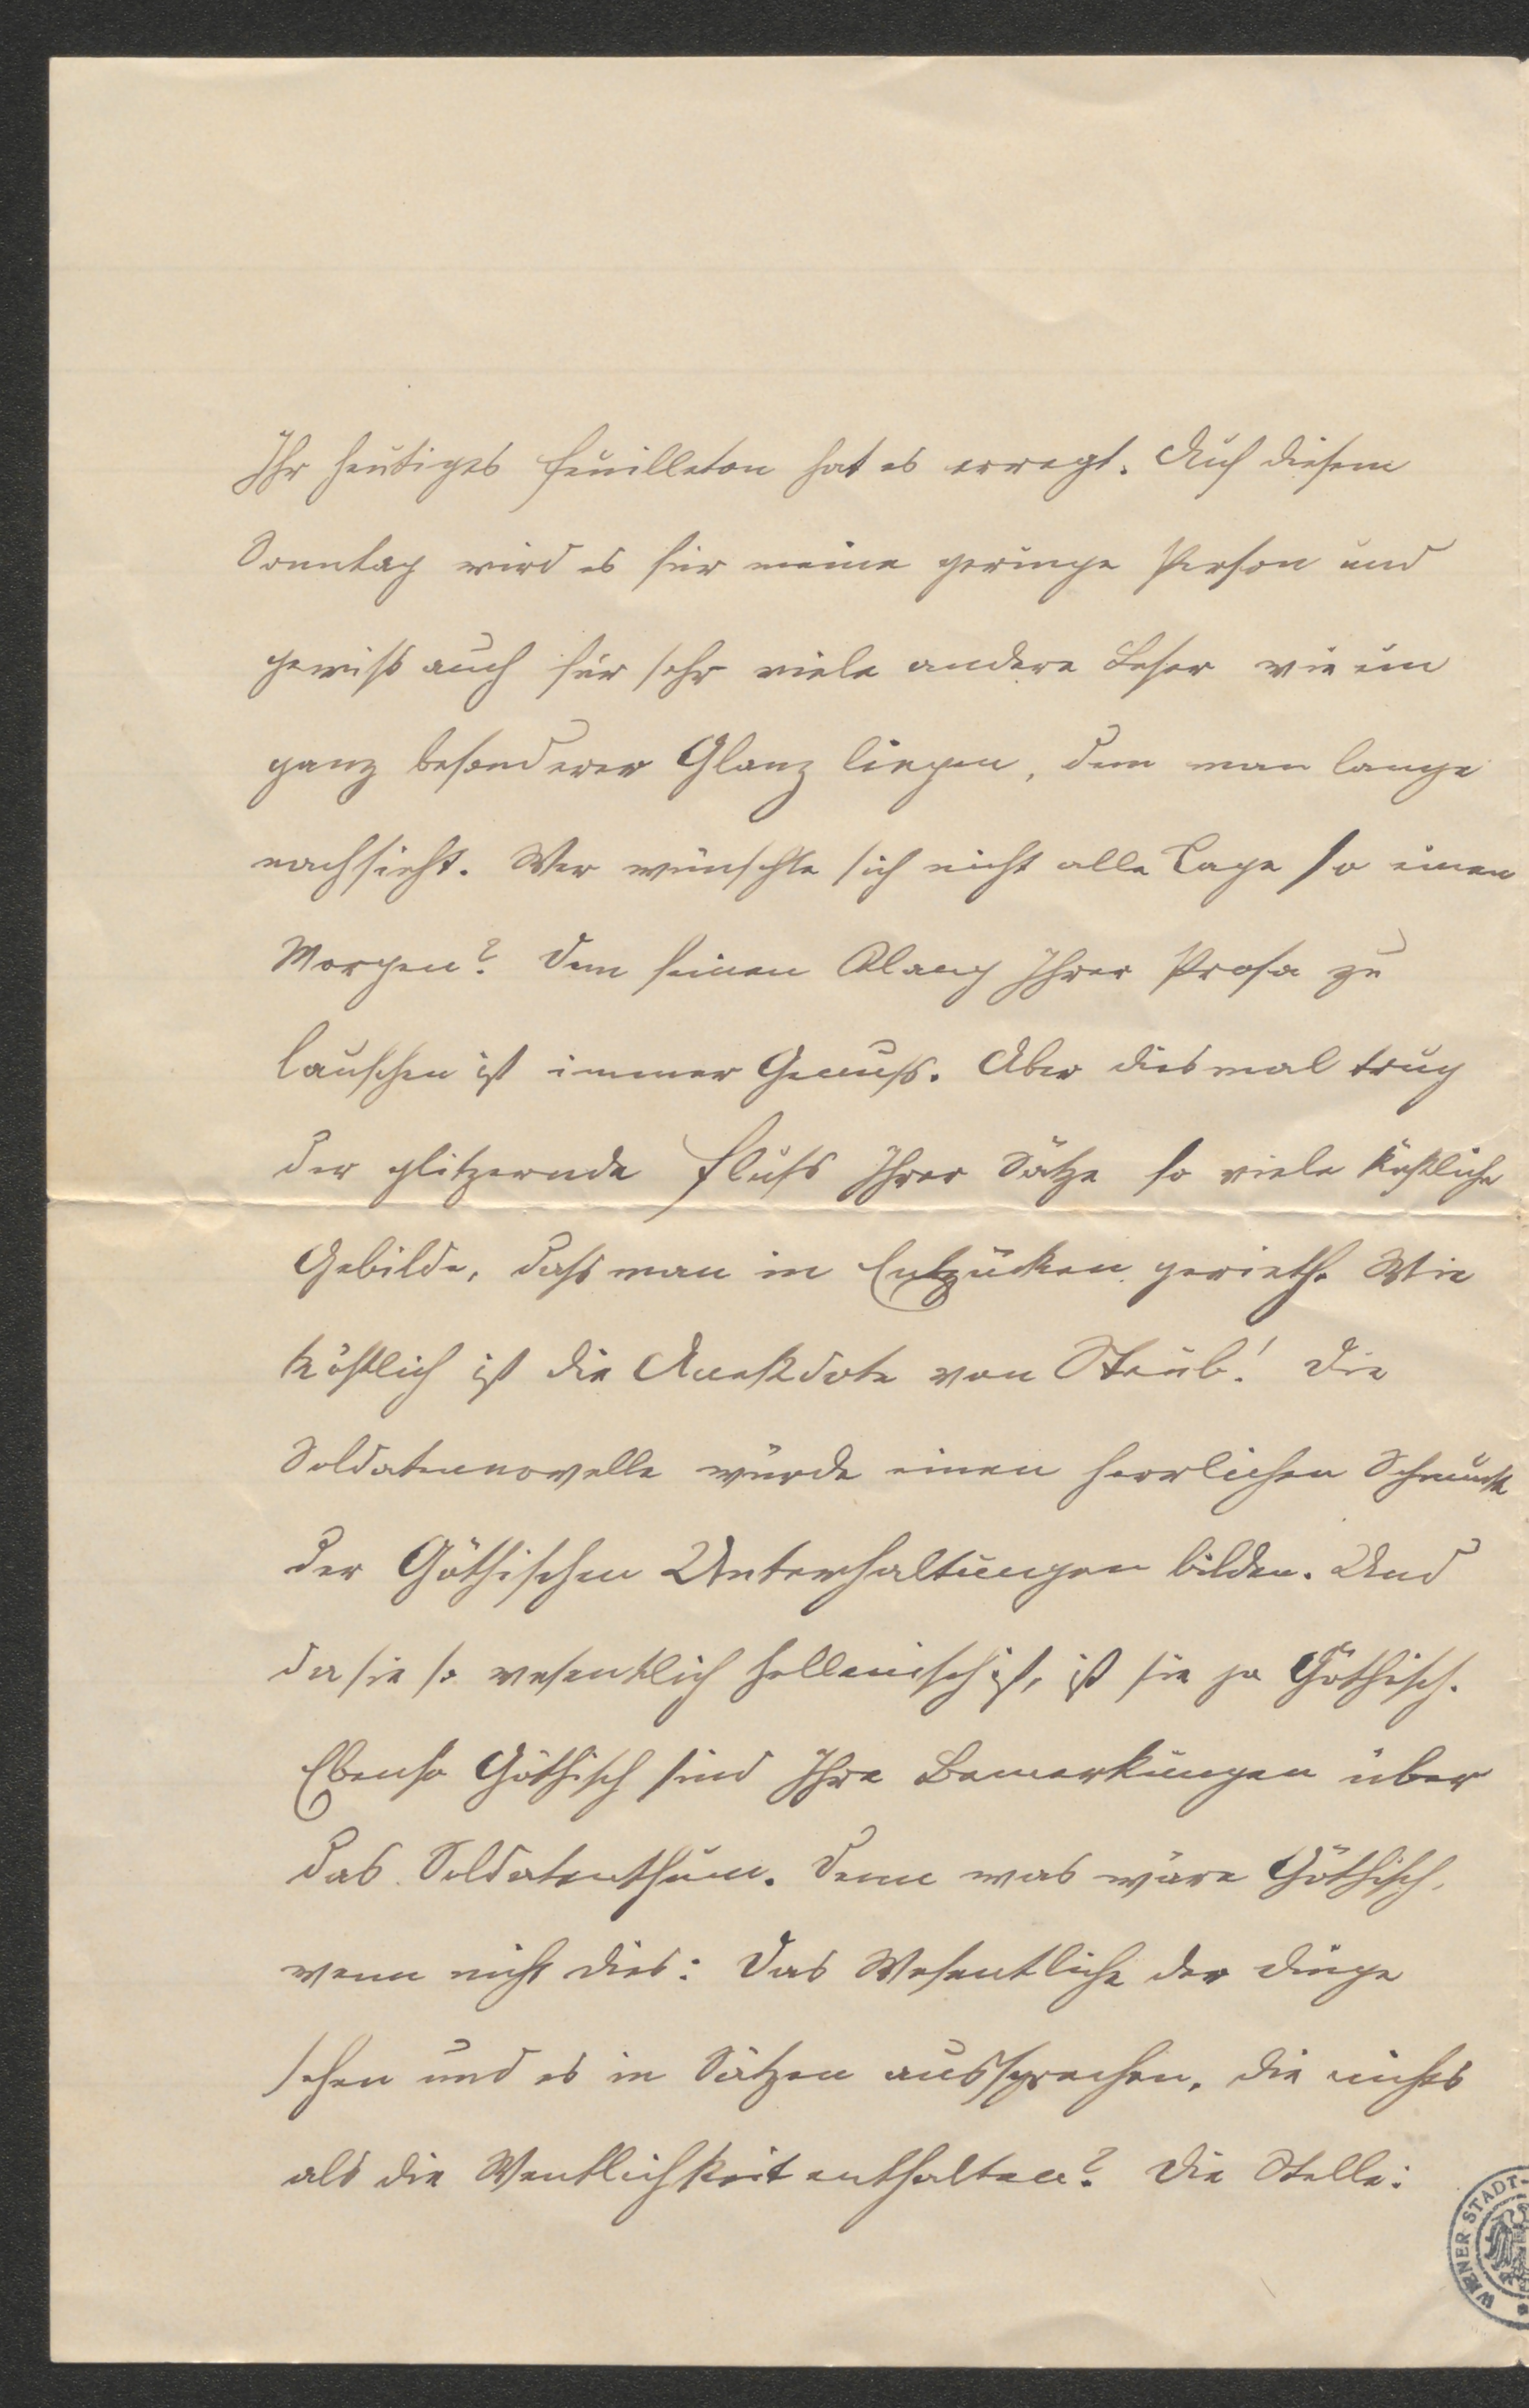 Ihr heutiges Feuilleton hat es erregt. Auf diesem
Sonntag wird es für meine geringe Person und
gewiß auch für sehr viele andere Leser wie ein
ganz besonderer Glanz liegen, dem man lange
nachsieht. Wer wünschte sich nicht alle Tage so einen
Morgen? Dem feinen Klang Ihrer Prosa zu
lauschen ist immer Genuss. Aber diesmal trug
der glitzernde Fluss Ihrer Sätze so viele köstliche
Gebilde, dass man in Entzücken gerieth. Wie
köstlich ist die Anekdote von Steub! Die
Soldatennovelle würde einen herrlichen Schmuck
der Göthischen Unterhaltungen bilden. Und
da sie so wesentlich hellenisch ist, ist sie ja Göthisch.
Ebenso Göthisch sind Ihre Bemerkungen über
das Soldatenthum. Denn was wäre Göthisch,
wenn nicht dies: Das Wesentliche der Dinge
sehen und es in Sätzen aussprechen, die nichts
als die Wentlichkeit enthalten? Die Stelle:
WIENER STADT-